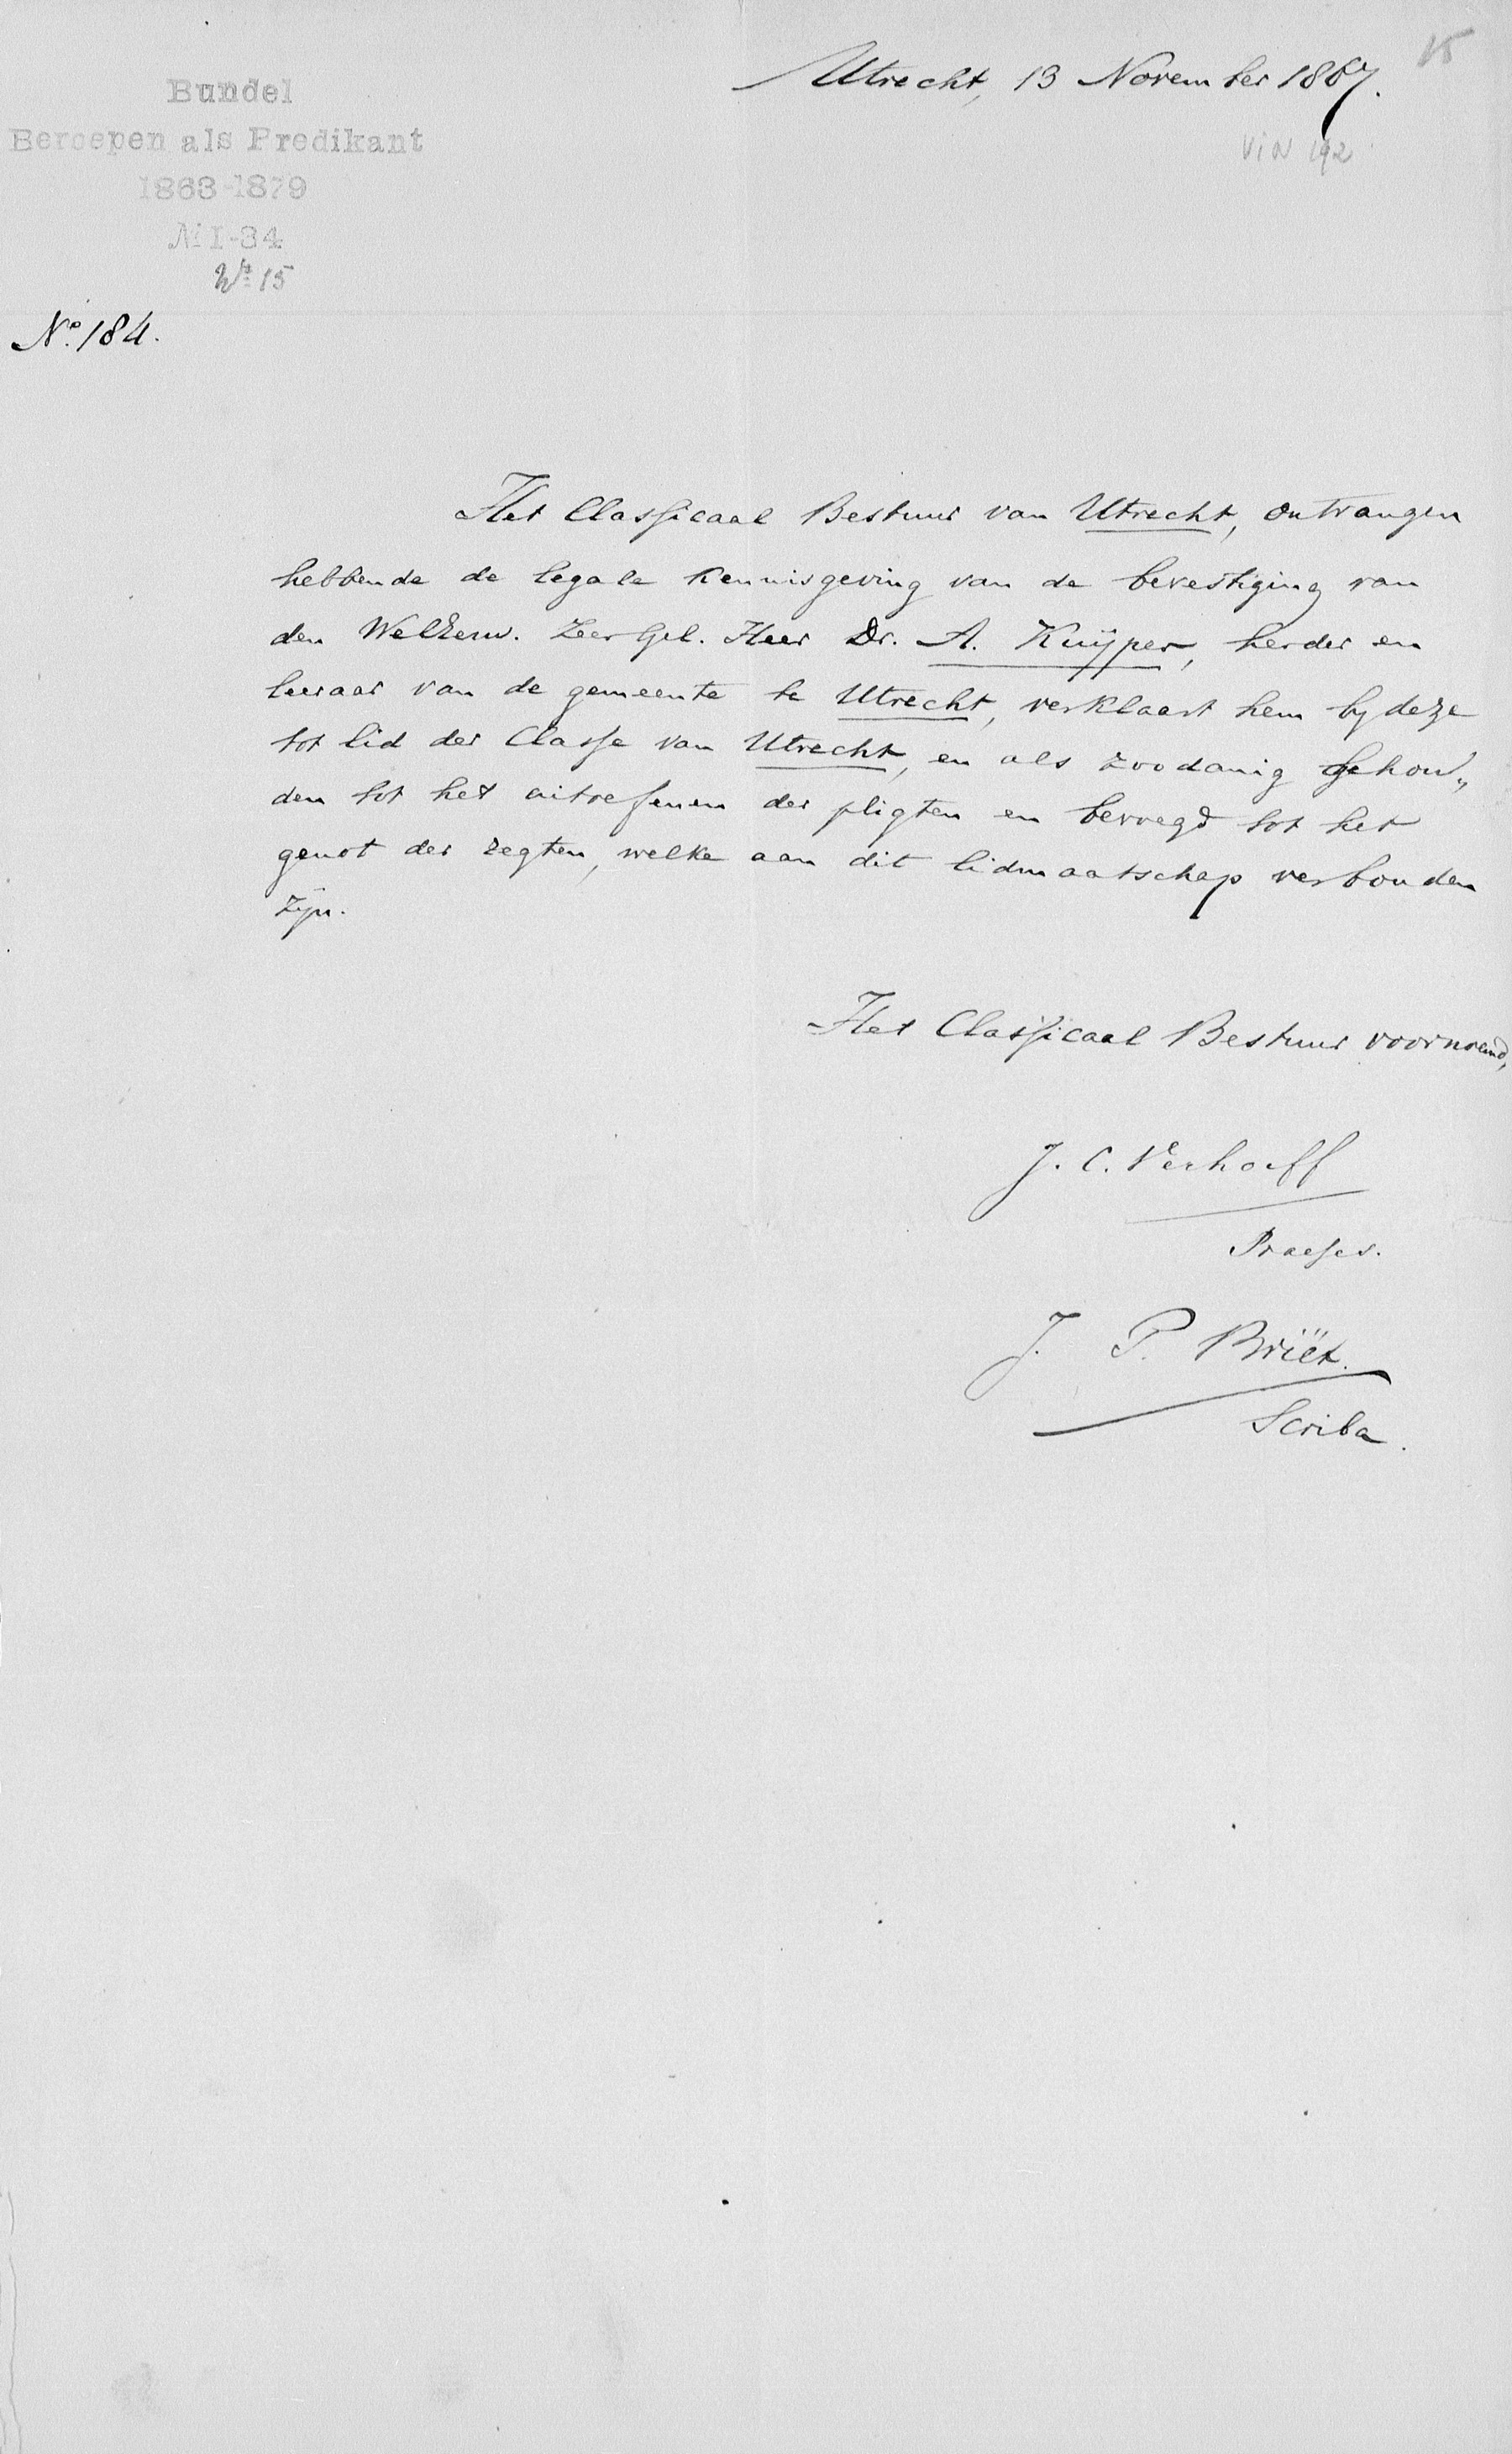 15
Utrecht, 13 November 1867.
VIN 192
Bundel
Beroepen als Predikant
1863-1879
№ I-34
No 15
No. 184.
Het Classicaal Bestuur van Utrecht, ontvangen
hebbende de legale kennisgeving van de bevestiging van
den WelEerw. Zeer Gel. Heer Dr. A. Kuÿper, herder en
leeraar van de gemeente te Utrecht, verklaart hem by deze
tot lid der Classe van Utrecht, en als zoodanig gehou„
den tot het uitoefenen der pligten en bevoegd tot het
genot der regten, welke aan dit lidmaatschap verbonden
zijn.
Het Classicaal Bestuur voornoemd,
J. C. Verhoeff
Praeses.
J. P. Briët.
Scriba.